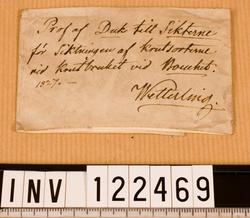 Prof af Duk till Sikterne
för Siktningen af krutsorterne
vid Krutbruket vid
1827.
Wetterling.
INV 122469